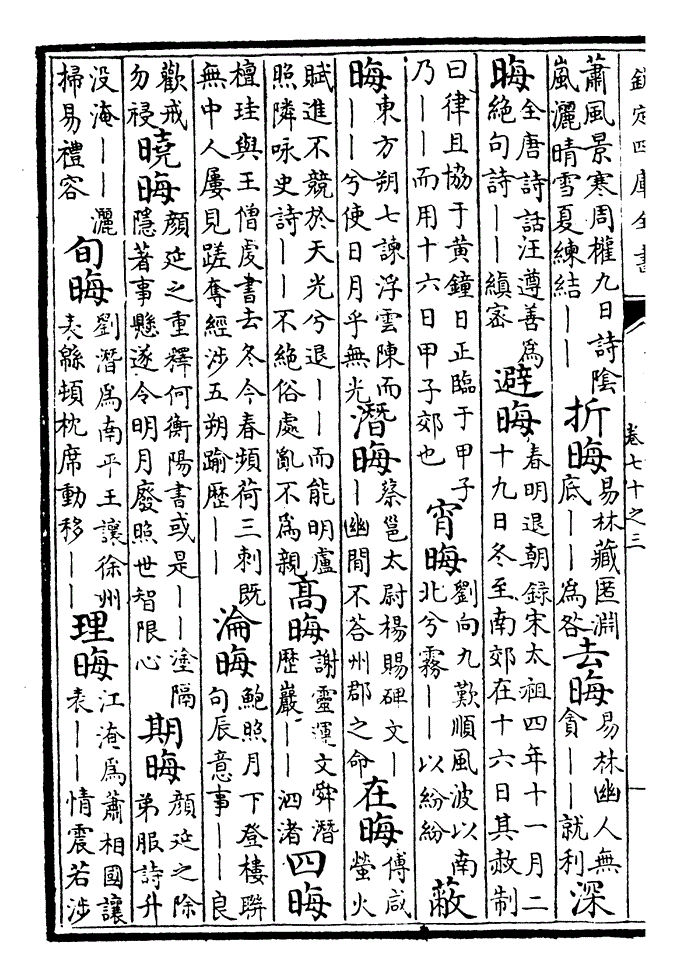 欽定四庫全書
卷七十之三
蕭風景寒周權九日詩陰嵐灑晴雪夏練結——折晦易林藏匿淵底——為咎去晦易林幽人無貪——就利深
晦全唐詩話汪遵善為絕句詩——縝密避晦春明退朝錄宋太祖四年十一月二十九日冬至南郊在十六日其赦制
曰律且協于黄鐘日正臨于甲子乃——而用十六日甲子郊也宵晦劉向九歎順風波以南北兮霧——以紛紛蔽
晦東方朔七諫浮雲陳而——兮使日月乎無光潛晦蔡邕太尉楊賜碑文——幽閒不荅州郡之命在晦傅咸螢火
賦進不競於天光兮退——而能明盧照隣咏史詩——不絕俗處亂不為親高晦謝靈運文舜潛歷巖——泗渚四晦
檀珪與王僧虔書去冬今春頻荷三刺既無中人屢見蹉奪經涉五朔踰歷——淪晦鮑照月下登樓聨句辰意事——良
歡戒勿祲曉晦顔延之重釋何衡陽書或是——塗隔隱著事懸遂令明月廢照世智限心期晦顔延之除弟服詩升
没淹——灑掃易禮容旬晦劉潛為南平王讓徐州表緜頓枕席動移——理晦江淹為蕭相國讓表——情震若涉